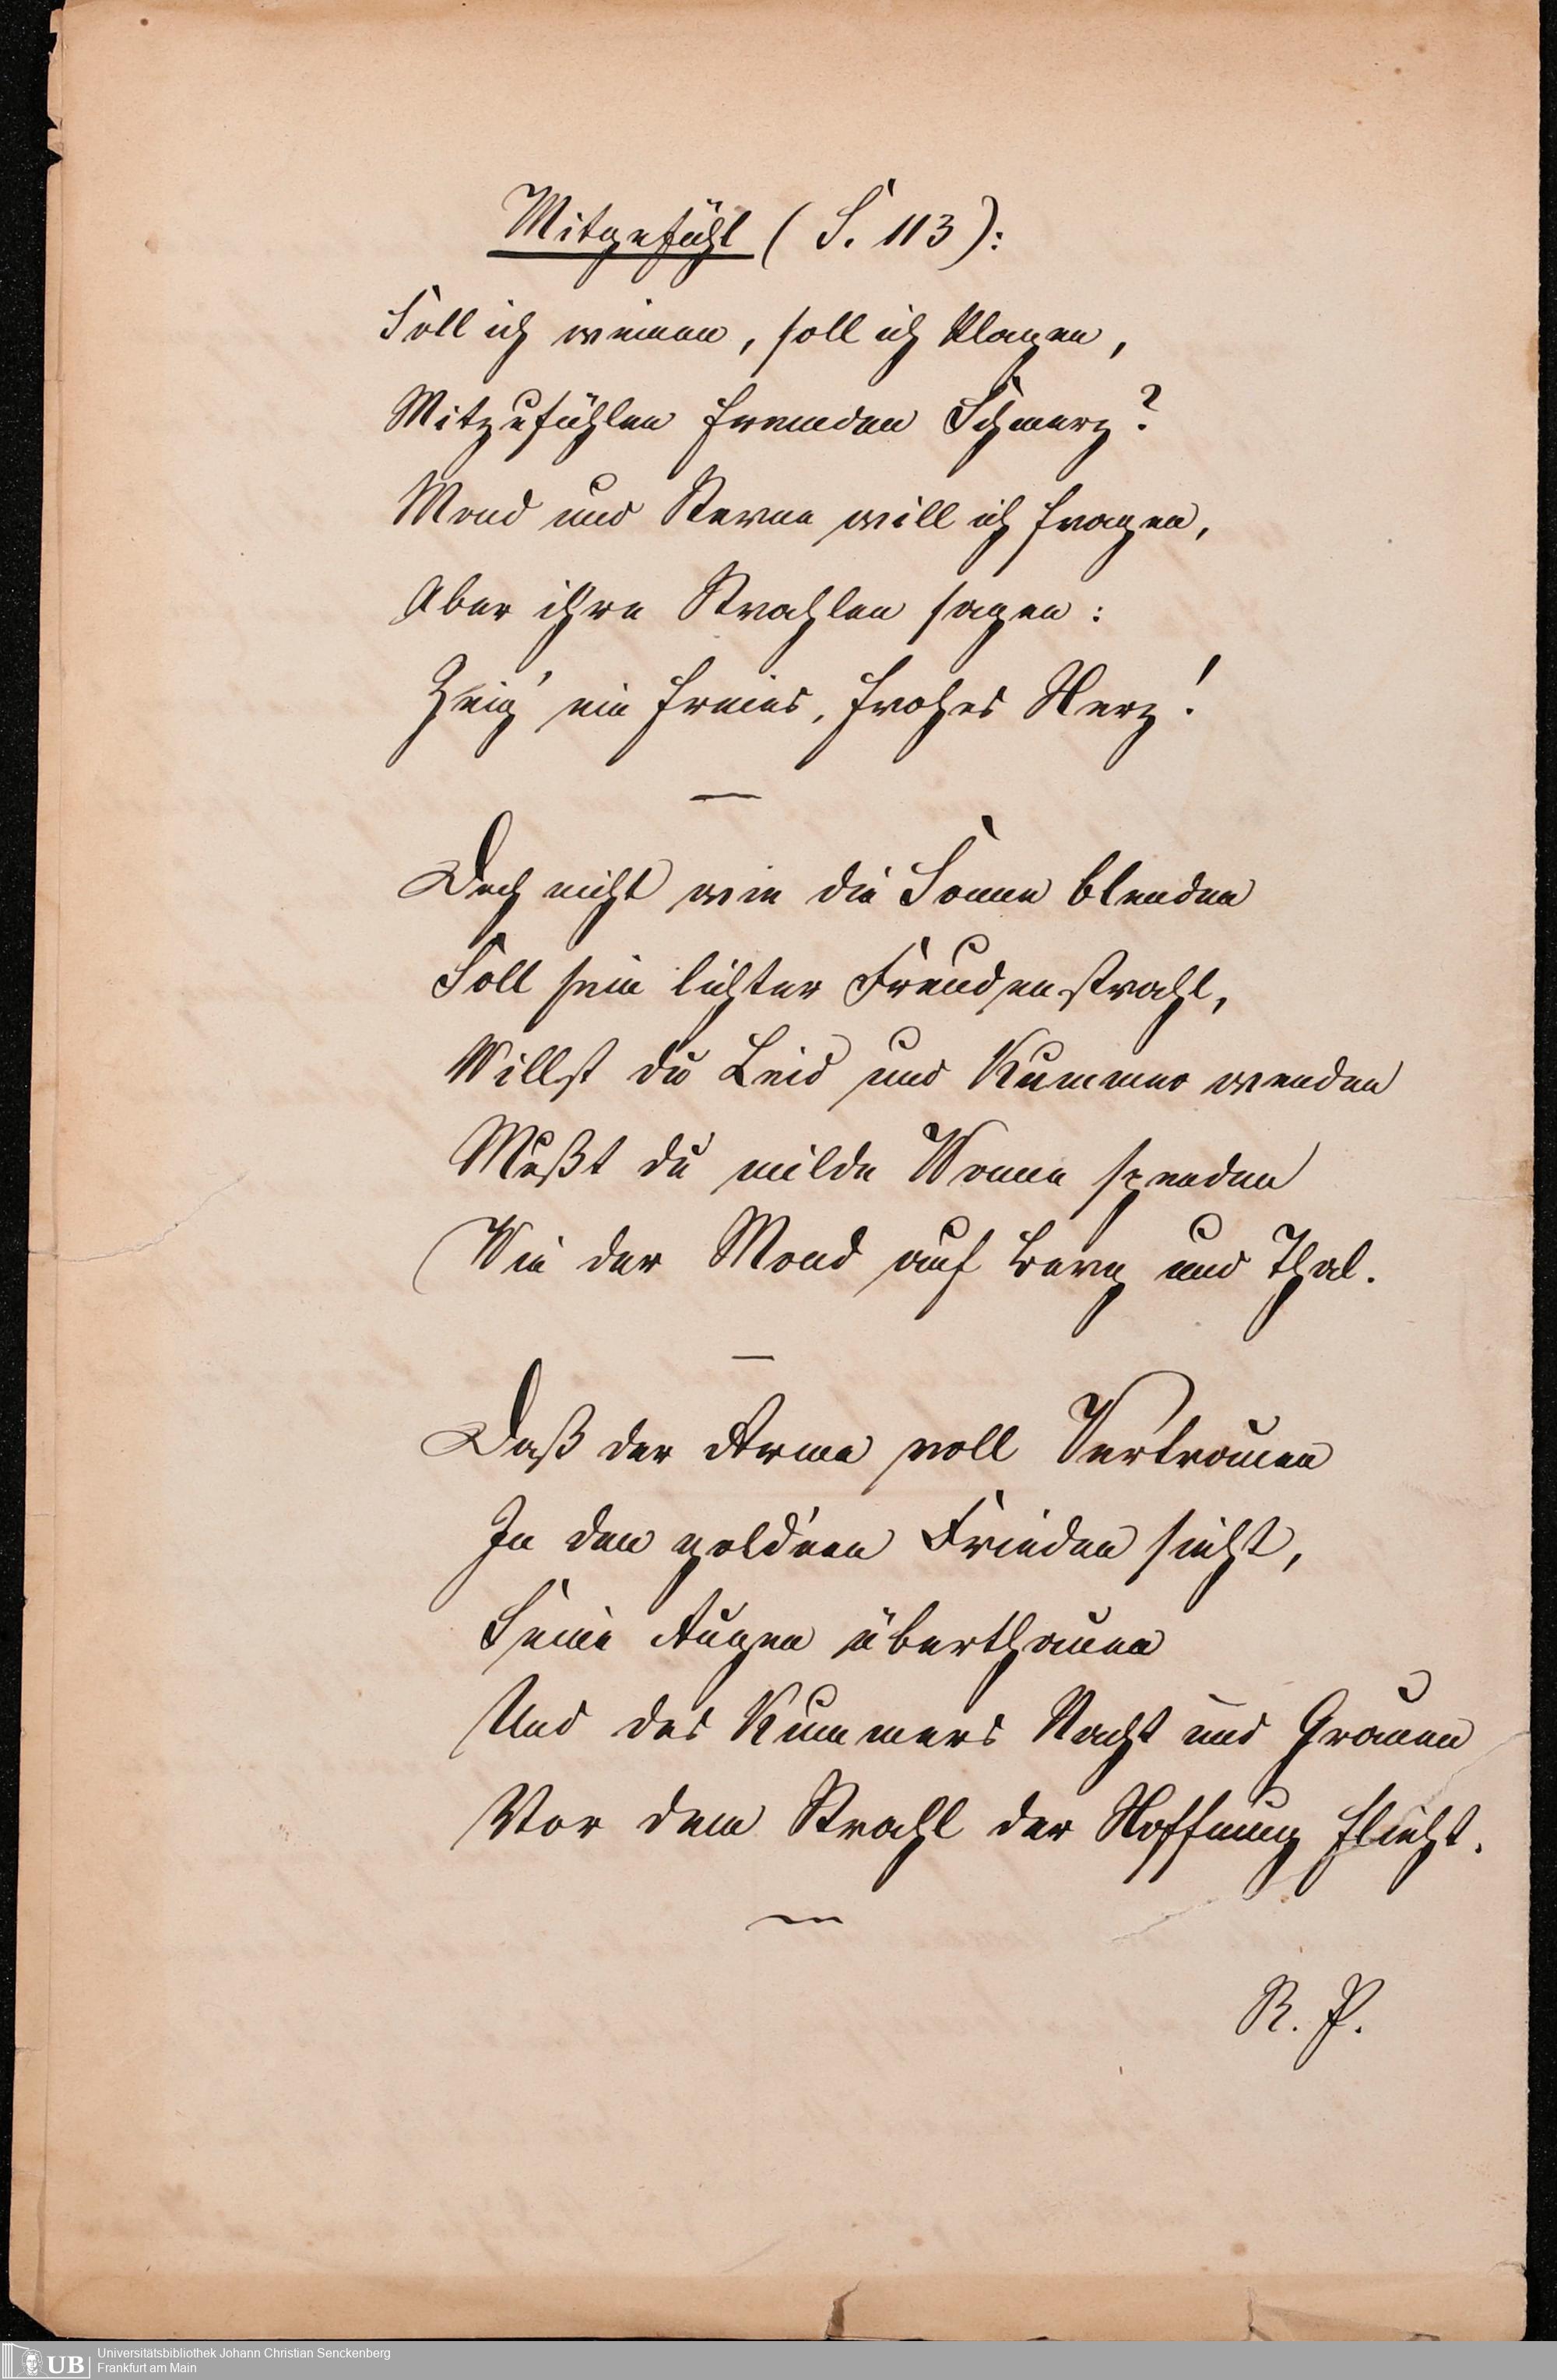 Mitgefühl (S. 113):
Soll ich weinen, soll ich klagen,
Mitzufühlen fremden Schmerz?
Mond und Sterne will ich fragen,
Aber ihre Strahlen sagen:
Zeig' ein freies, frohes Herz!
—
Doch nicht wie die Sonne blenden
Soll sein lichter Freudenstrahl,
Willst du Leid und Kummer wenden
Mußt du milde Wonne spenden
Wie der Mond auf Berg und Thal.
—
Daß der Arme voll Vertrauen
In den gold'nen Frieden sieht,
Seine Augen überthauen
Und des Kummers Nacht und Grauen
Vor dem Strahl der Hoffnung flieht.
R. P.
UB
Universitätsbibliothek Johann Christian Senckenberg
Frankfurt am Main